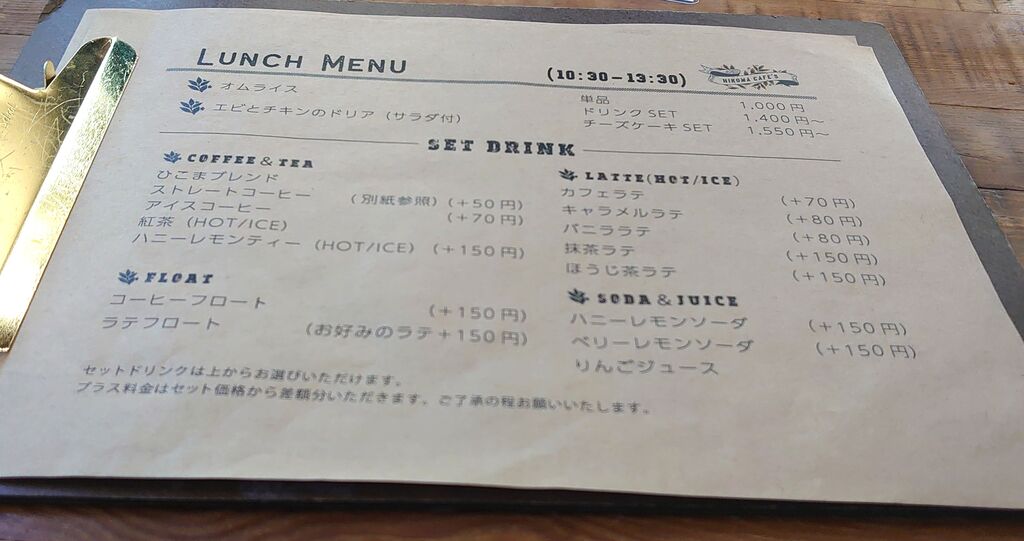 LUNCH MENU (10:30-13:30)
HIKOMA CAFE'S
オムライス
エビとチキンのドリア（サラダ付）
単品 1,000円
ドリンクSET 1,400円～
チーズケーキSET 1,550円～
SET DRINK
COFFEE & TEA
ひこまブレンド
ストレートコーヒー （別紙参照）（＋50円）
アイスコーヒー （＋70円）
紅茶（HOT/ICE）
ハニーレモンティー（HOT/ICE）（＋150円）
FLOAT
コーヒーフロート （＋150円）
ラテフロート （お好みのラテ＋150円）
LATTE(HOT/ICE)
カフェラテ （＋70円）
キャラメルラテ （＋80円）
バニララテ （＋80円）
抹茶ラテ （＋150円）
ほうじ茶ラテ （＋150円）
SODA & JUICE
ハニーレモンソーダ （＋150円）
ベリーレモンソーダ （＋150円）
りんごジュース
セットドリンクは上からお選びいただけます。
プラス料金はセット価格から差額分いただきます。ご了承の程お願いいたします。